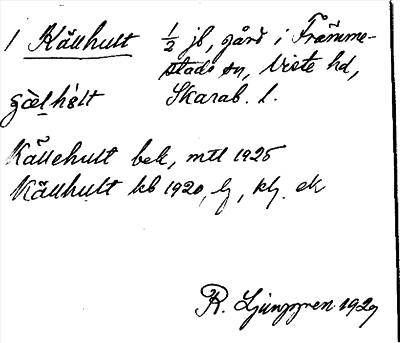 1 Källhult ½ jb, gård i Främme-
stads sn, Viste hd,
gœ̀lhʹlt Skarab. l.
Källehult bek, mtl 1925
Källhult kb 1920, lj, klj. ek
R. Ljunggren 1929